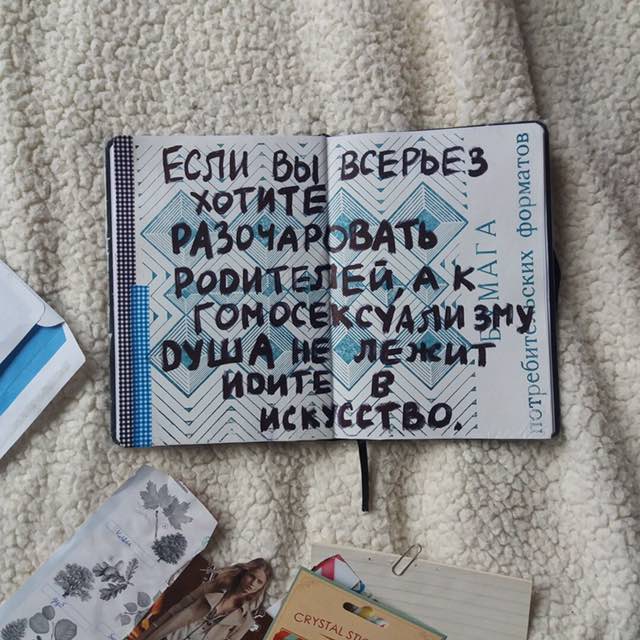 ЕСЛИ ВЫ ВСЕРЬЕЗ
ХОТИТЕ
РАЗОЧАРОВАТЬ
РОДИТЕЛЕЙ, А К
ГОМОСЕКСУАЛИЗМУ
ДУША НЕ ЛЕЖИТ
ИДИТЕ В
ИСКУССТВО.
БУМАГА
потребительских форматов
CRYSTAL STIC